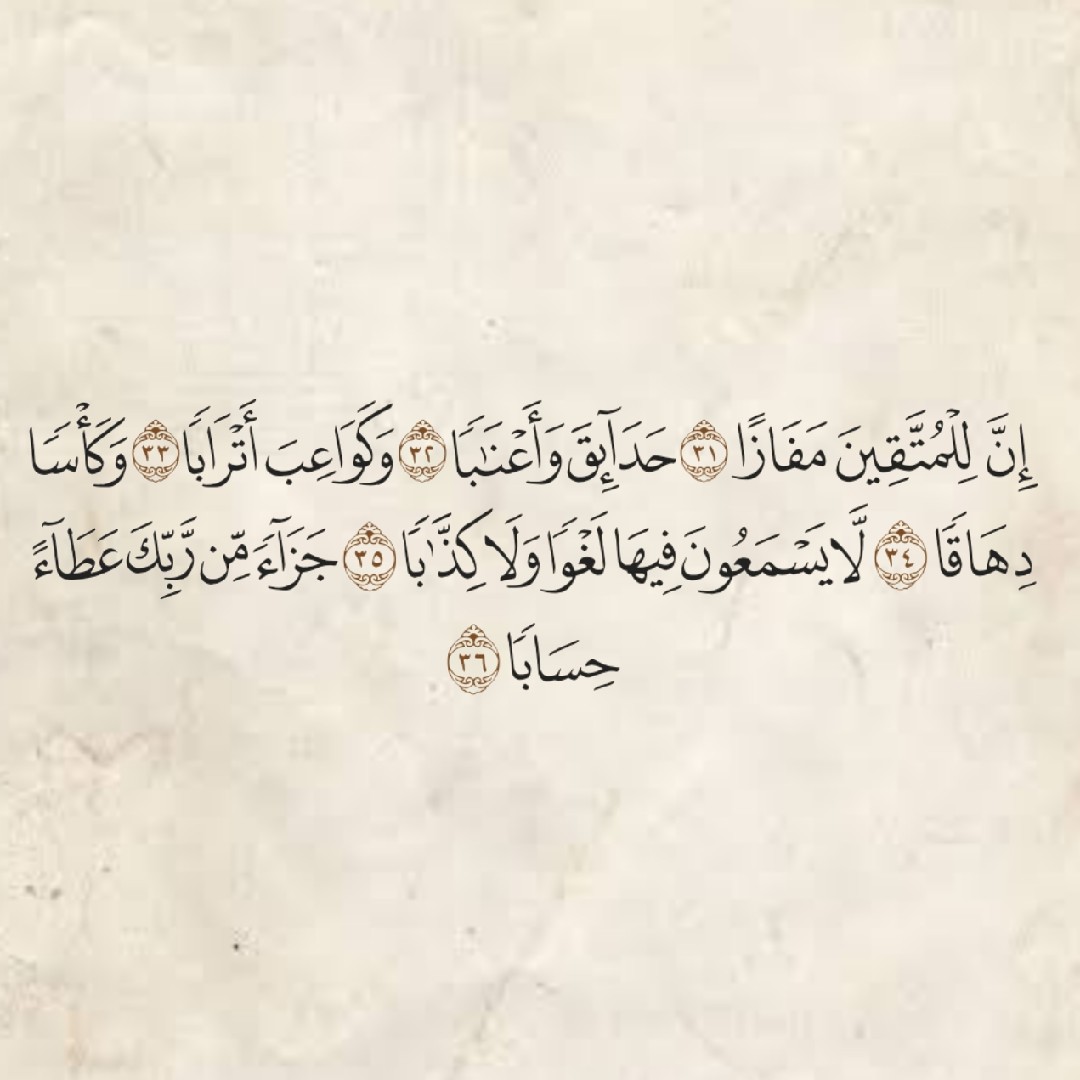 إِنَّ لِلْمُتَّقِينَ مَفَازًا ٣١ حَدَآئِقَ وَأَعْنَٰبًا ٣٢ وَكَوَاعِبَ أَتْرَابًا ٣٣ وَكَأْسًا
دِهَاقًا ٣٤ لَّا يَسْمَعُونَ فِيهَا لَغْوًا وَلَا كِذَّٰبًا ٣٥ جَزَآءً مِّن رَّبِّكَ عَطَآءً
حِسَابًا ٣٦